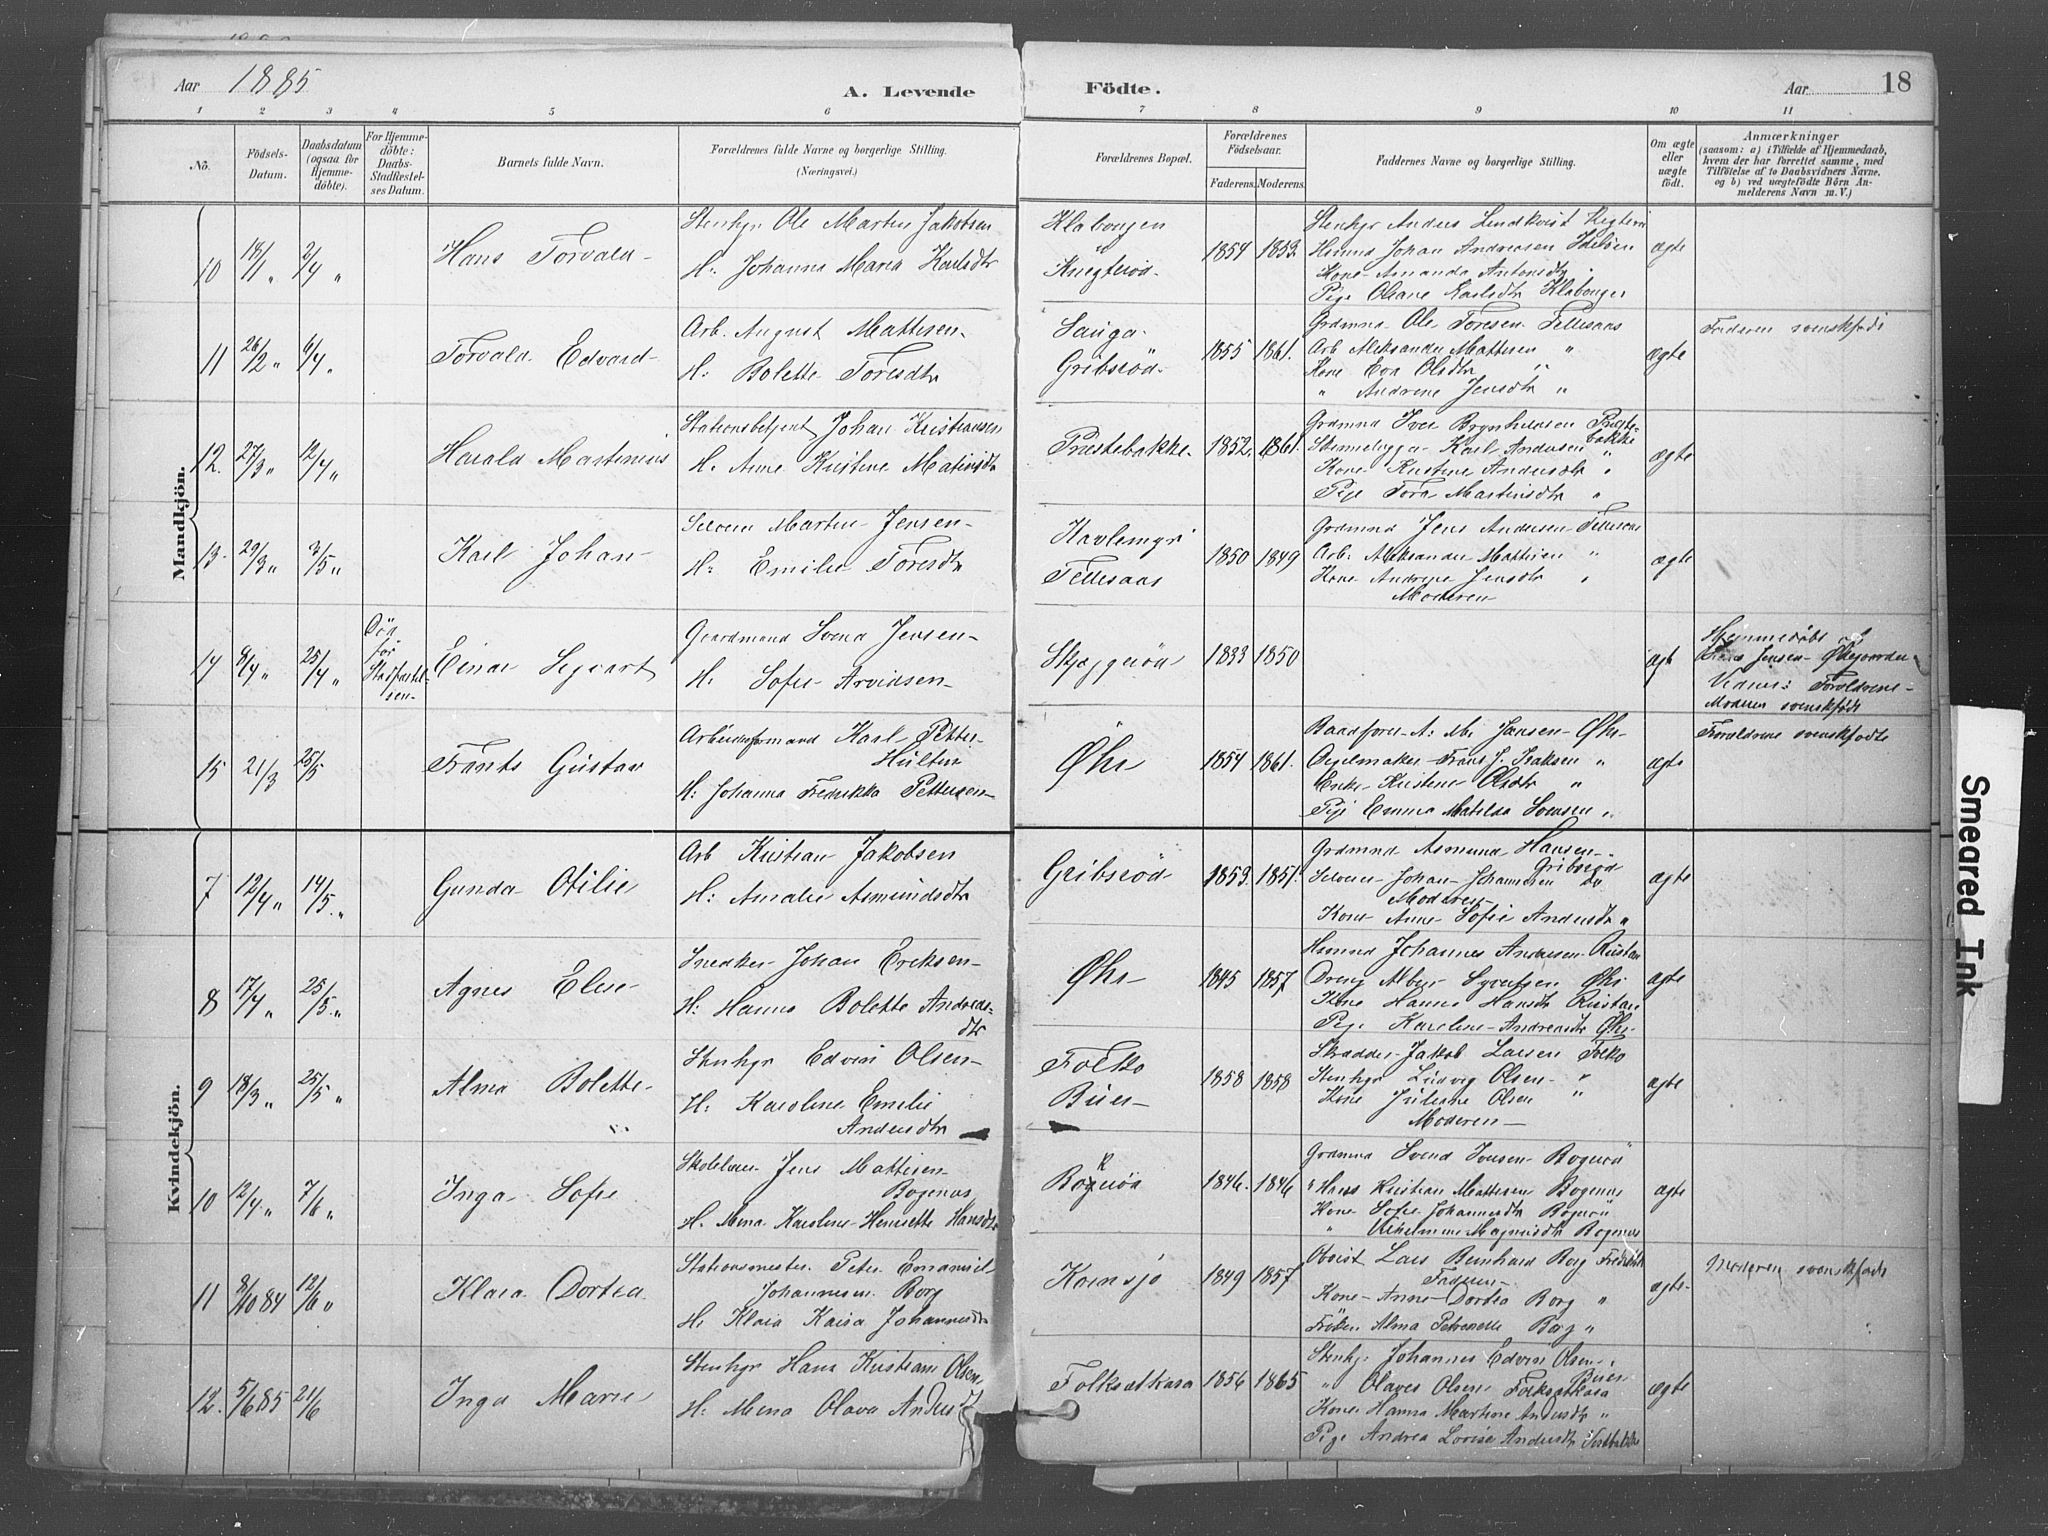 Aar 1885
A. Levende
Födte.
Aar 18
1 2 3 4 5 6 7 8 9 10 11
No.
Födsels-Datum.
Daabsdatum (ogsaa for Hjemmedöbte).
For Hjemmedöbte: Daabs-Stadfæstelses Datum.
Barnets fulde Navn.
Forældrenes fulde Navne og borgerlige Stilling.
(Næringsvei.)
Forældrenes Bopæl.
Forældrenes Födselsaar.
Faderens. Moderens.
Faddernes Navne og borgerlige Stilling.
Om ægte eller uægte födt.
Anmærkninger
(saasom: a) i Tilfælde af Hjemmedaab, hvem der har forrettet samme, med Tilföielse af to Daabsvidners Navne, og b) ved uægtefödte Börn Anmelderens Navn m. V.)
Mandkjön.
10 18/1 " 2/4 " Hans Torvald
Stenhgr Ole Martin Jakobsen
H: Johanna Maria Karlsdtr
Klabongen
Knegteröd
1854 1853
Stenhgr Anders Lindkvist
Johan Andreasen
Kone Amanda Antonsdtr
Pige Oleane Karlsdtr Klabongen
ægte
11 26/2 " 6/4 " Torvald Edvard
Arb. August Mattisen
H: Bolette Toresdtr
Sauga
Gribsröd
1855 1861.
Grdmnd Ole Toresen Tellesaas
Arb Aleksander Mattisen "
Kone Eva Olsdtr "
" Andrine Jensdtr "
ægte
Faderen svenskfödt
12. 27/3 " 12/4 " Harald Martinius
Stationsbetjent Johan Kristiansen
H. Anne Kristine
Præstebakke
1852. 1861.
Grdmnd Iver Brynhildsen Præstebakke
Skinnelægger Karl Andersen "
Kone Kristine Andersdtr "
Pige Tora Martinsdtr "
ægte
13. 29/3 " 3/5 " Karl Johan
Selveier Martin Jensen
H: Emilie Toresdtr
Kavlemyr
Tellesaas
1850 1849
Grdmnd Jens Andersen Tellesaas
Arb. Aleksander Mattisen "
Kone Andrine Jensdtr "
Moderen
ægte
14 8/4 " 25/4 " Död för Stadfæstelsen
Einar Sigvart
Gaardmand Svend Jensen
H: Sofie Arvidsen
Skjeggeröd
1833 1850
ægte
Hjemmedöbt af
Jensen
Vidner: Forældrene
Moderen svenskfödt
15 21/3 25/5 Frants Gustav
Arbeidsformand Karl Petter
Hultin
H: Johanna Fredrikka Pettersen
Øhr
1854 1861.
A: M: Jansen Øhr
Frans J. Isaksen "
Enke Kristine Olsdtr "
Pige Emma Matilda Svensen "
ægte
Forældrene svenskfödte
Kvindekjön.
7 12/4 " 14/5 " Gunda Otilie
Arb Kristian Jakobsen
H: Amalie Asmundsdtr
Gribsröd
1853. 1851.
Grdmnd Asmund Hansen Gribsröd
Selveier Johan Johannesen Do
Moderen
Kone Anne Sofie Andersdtr "
ægte
8 17/4 " 25/5 " Agnes Elise
Snedker Johan Eriksen
H: Hanna Bolette Andreasdtr
Øhr
1845 1857
Johannes Andersen
Dreng Albin Øhr
Kone Hanna Hansdtr
Pige Karoline Andreasdtr Øhr
ægte
9 18/3 " 25/5 " Alma Bolette
Stenhgr Edvin Olsen
H: Karoline Emilie
Andersdtr
Folko
Buer
1858 1858
Skrædder Jakob Larsen Folko
Stenhgr Ludvig Olsen "
Kone Juliane Olsen "
Moderen
ægte
10 12/4 " 7/6 " Inga Sofie
Skolelærer Jens Mattisen
Bogenæs
H. Mina Karoline Henriette Hansdtr
Bogeröd
1846. 1846
Grdmnd Svend Iversen Bogeröd
" Hans Kristian Mattisen Bogenæs
Kone Sofie Johannesdtr Bogeröd
" Vilhelmine Magnusdtr Bogenæs
ægte
11 8/10 84 12/6 " Klara Dortea
Stationsmester Peter Emanuel
Johannesen Borg
H: Klara Kaisa Johannesdtr
Kornsjö
1849 1857
Lars Bernhard Borg
Faderen
Kone Anne Dortea Borg "
Fröken Alma Petronelle Borg "
ægte
Moderen svenskfödt
12. 5/6 85 21/6 Inga Marie
Stenhgr Hans Kristian Olsen
H: Mina Olava
Folksætkasa
1856 1865
Stenhgr Johannes Edvin Olsen Buer
" Olaves Olsen Folksætkasa
Kone Hanna Martine Andersdtr "
Pige Andrea Lovise Andersdtr
ægte
Smeared Ink